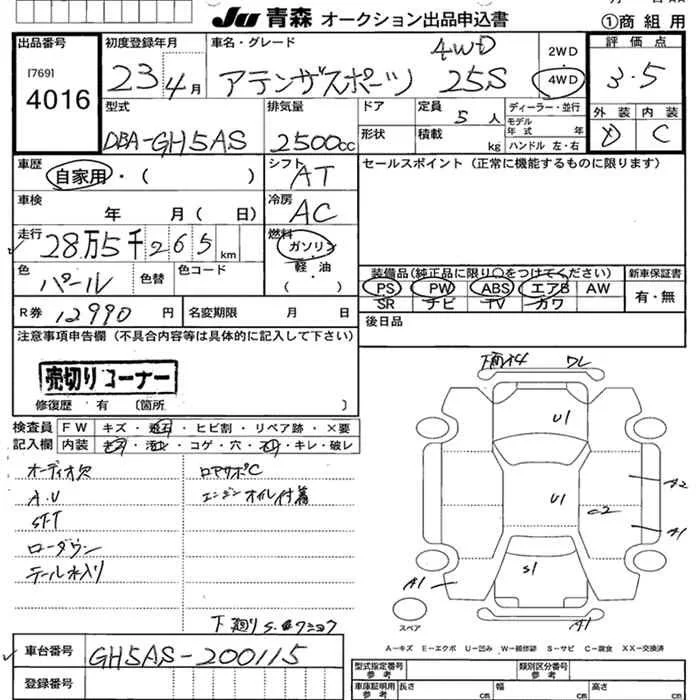 JU 青森 オークション出品申込書
①商 組 用
出品番号
[769]
4016
初度登録年月
23年4月
車名・グレード
アテンザスポーツ 25S 4WD
2WD
4WD
評価点
3.5
外装 内装
D C
型式
DBA-GH5AS
排気量
2500cc
ドア
形状
定員 5人
積載 kg
ディーラー・並行
モデル年式 年
ハンドル 左・右
車歴
自家用・( )
シフト
AT
セールスポイント (正常に機能するものに限ります)
車検
年 月( 日)
冷房
AC
走行
28万5千265km
燃料
ガソリン
軽・油
( )
色
パール
色替
色コード
装備品(純正品に限り○をつけてください)
PS PW ABS エアB AW
SR ナビ TV カワ
新車保証書
有・無
R券 12990円
名変期限 月 日
後日品
注意事項申告欄(不具合内容等は具体的に記入して下さい)
売切りコーナー
修復歴 有 (箇所 )
検査員記入欄
FW キズ・飛石・ヒビ割・リペア跡・×要
内装 キズ・汚れ・コゲ・穴・スレ・キレ・破レ
オーディオ欠
A.U
SFT
ローダウン
テール水入り
ロアサポC
エンジンオイル付着
下廻りS.
U1
U1
S1
C2
A2
A1
A1
A1
スペア
A-キズ E-エクボ U-凹み W-補修跡 S-サビ C-腐食 XX-交換済
車台番号
GH5AS-200115
登録番号
型式指定番号
参考
類別区分番号
参考
車庫証明用
参考
長さ cm 幅 cm 高さ cm